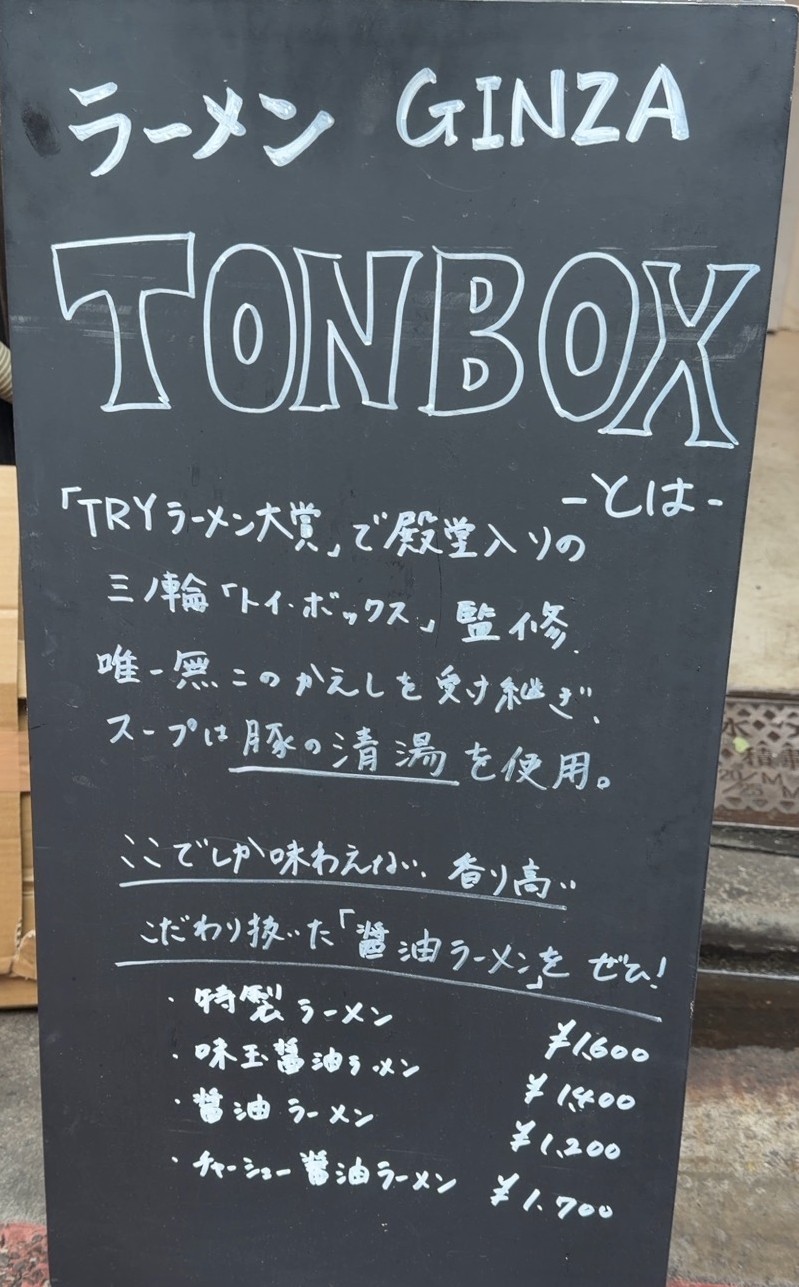 ラーメン GINZA
TONBOX
-とは-
「TRYラーメン大賞」で殿堂入りの
三ノ輪「トイ・ボックス」監修、
唯一無二のかえしを受け継ぎ、
スープは豚の清湯を使用。
ここでしか味わえない、香り高い
こだわり抜いた「醤油ラーメン」を ぜひ!
・特製ラーメン ¥1,600
・味玉醤油ラーメン ¥1,400
・醤油ラーメン ¥1,200
・チャーシュー醤油ラーメン ¥1,700
20/M
/25 M